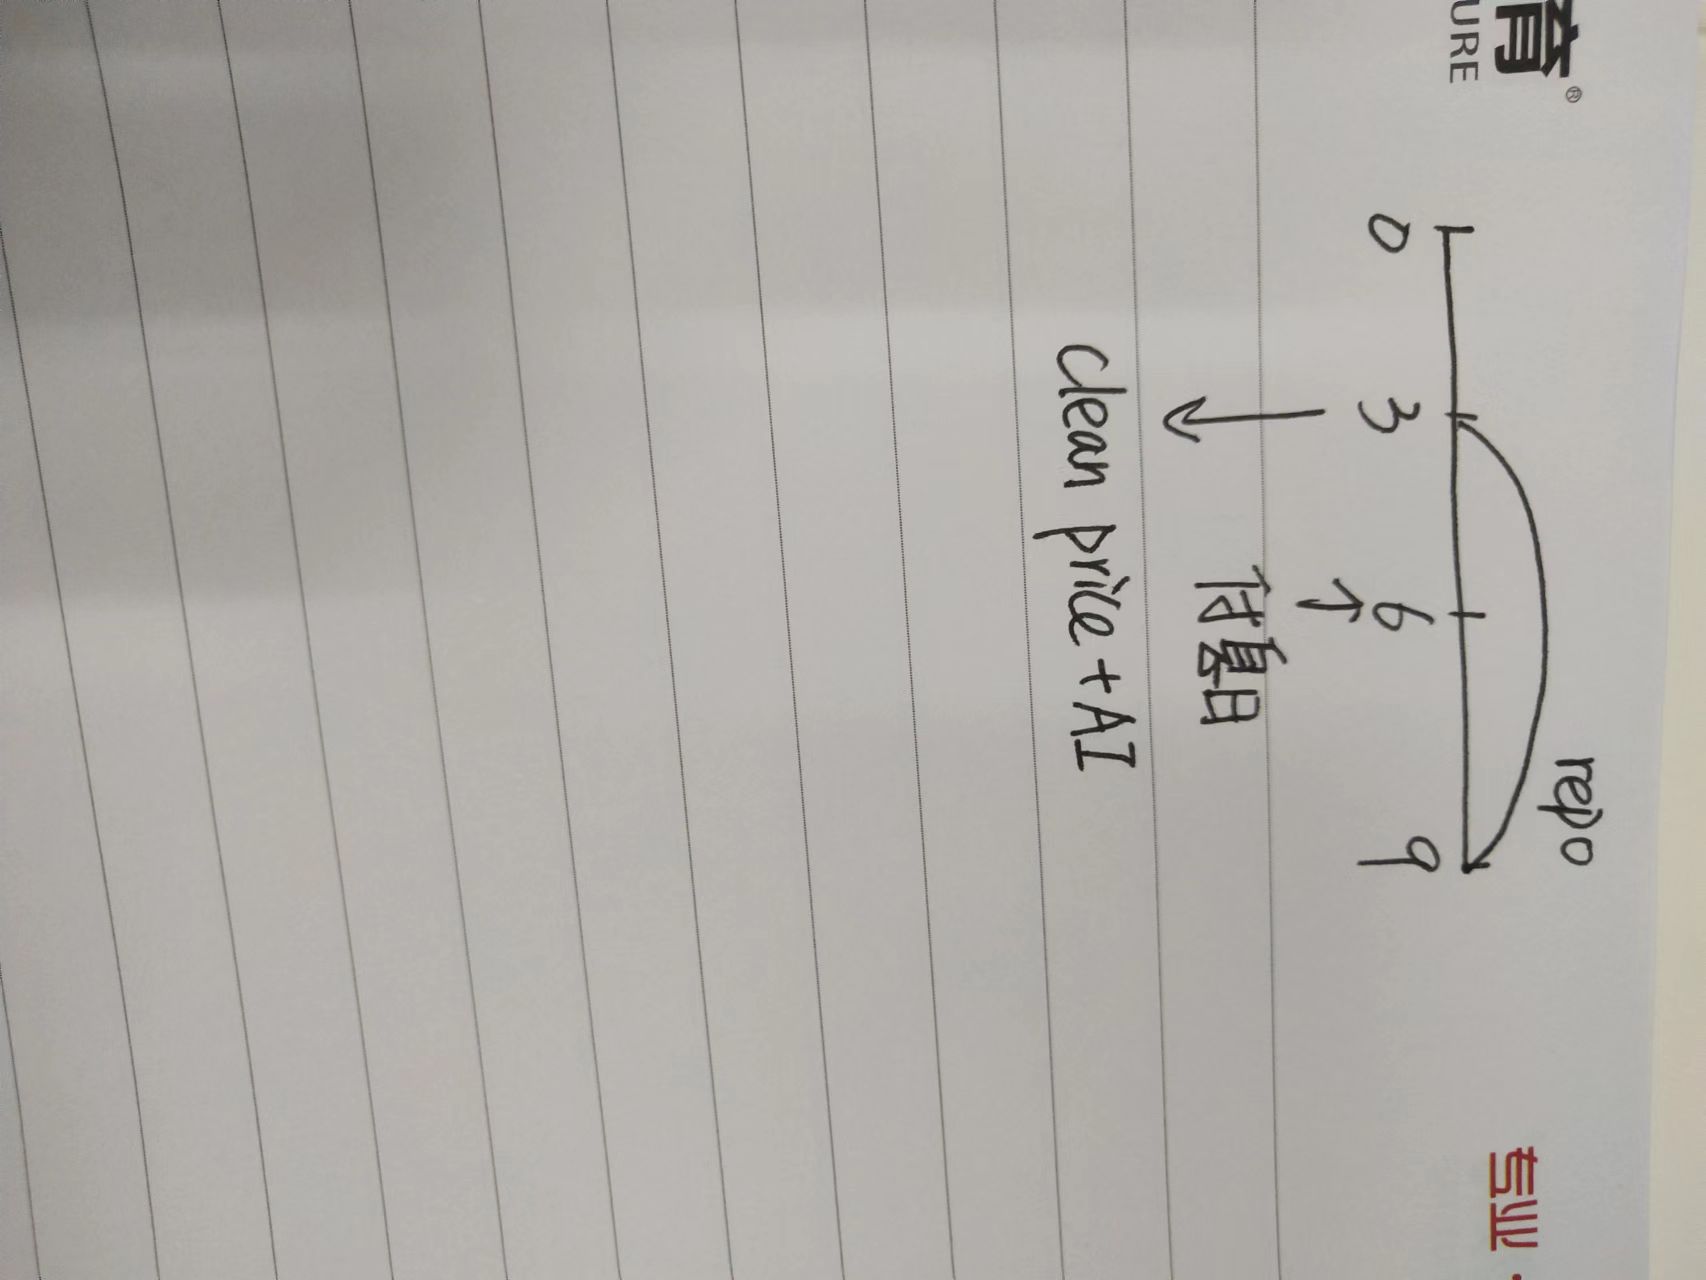 育®
URE
专业·
repo
0 3 6 9
付息日
clean price + AI